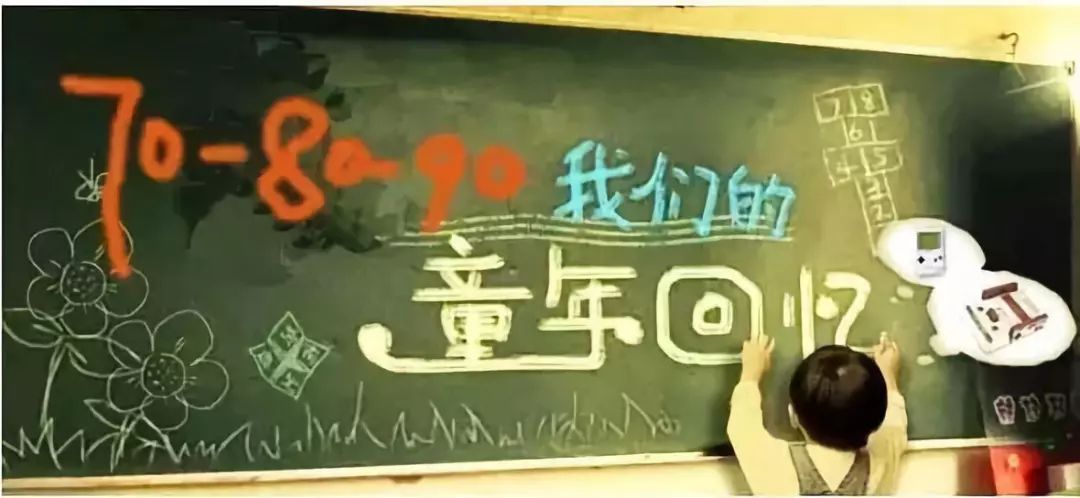 70-80-90
我们的
童年回忆
7 8
6
4 5